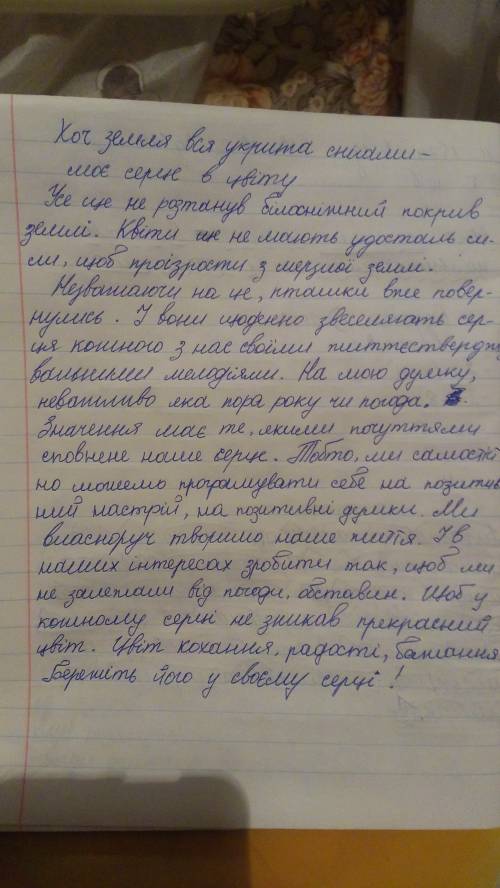 Хоч земля вся укрита снігами –
моє серце в цвіту
Же ще не розтанув білосніжний покрив
землі. Квіти ще не мають удосталь си-
ли, щоб проізрости з мерзлої землі.
Незважаючи на це, пташки вже повер-
нулись. І вони щоденно звеселяють сер-
ця кожного з нас своїми життєстверджу
вальними мелодіями. На мою думку,
неважливо яка пора року чи погода.
Значення має те, якими почуттями
сповнене наше серце. Тобто, ми самостій
но можемо програмувати себе на позитив
ний настрій, на позитивні думки. Ми
власноруч творимо наше життя. І в
наших інтересах зробити так, щоб ми
не залежали від погоди, обставин. Щоб у
кожному серці не зникав прекрасний
цвіт. Цвіт кохання, радості, бажання
Бережіть його у своєму серці!